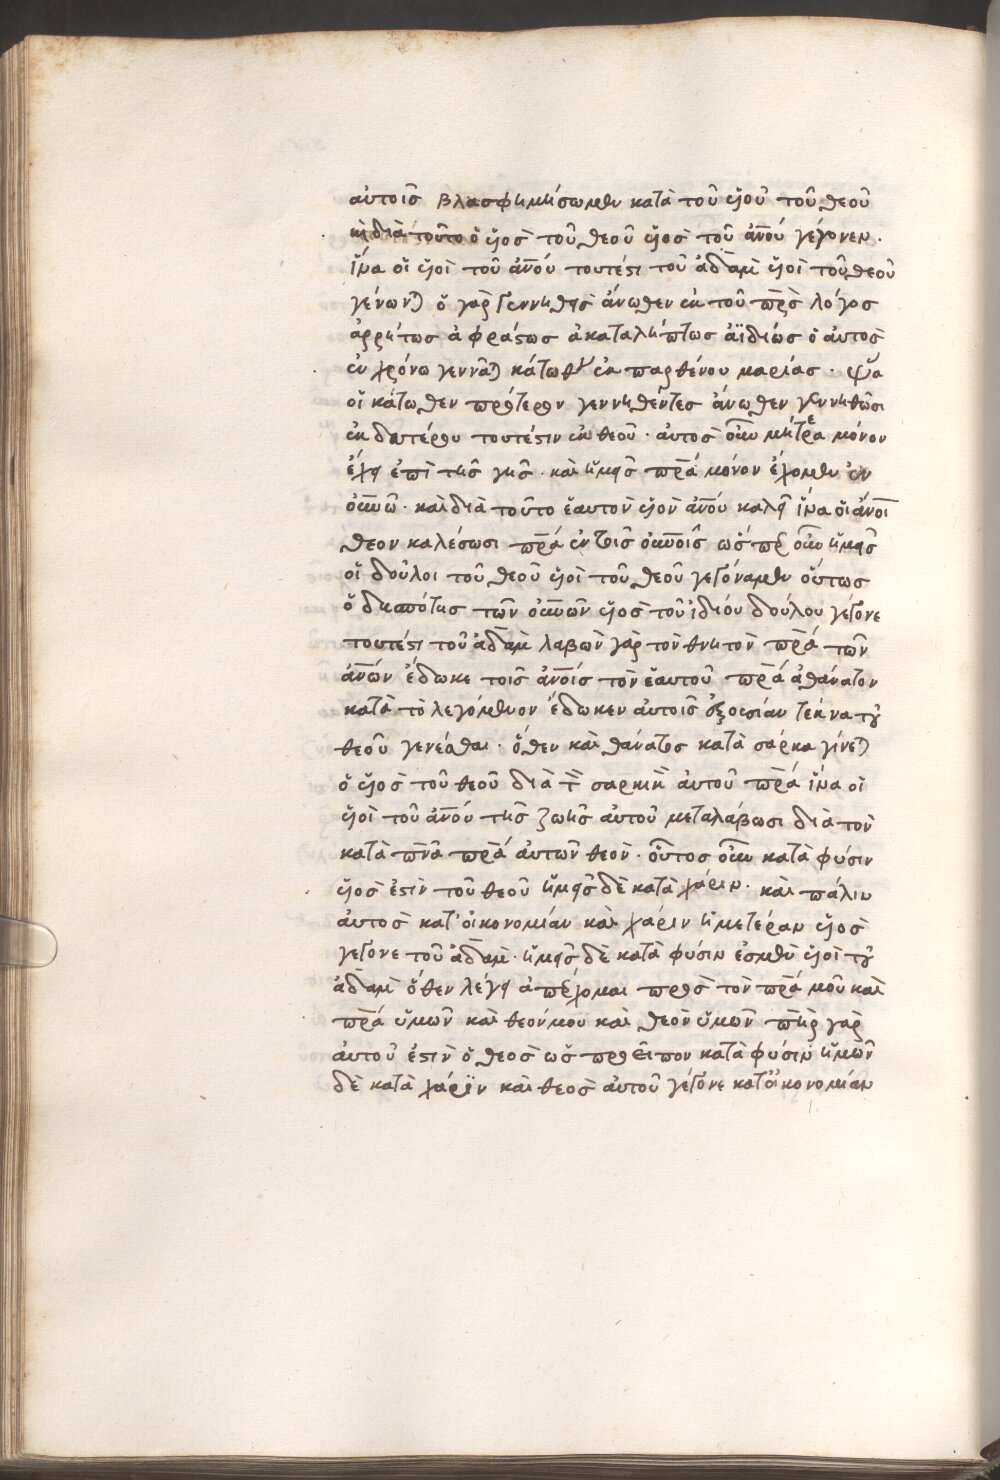 αὐτοῖς βλασφημήσωμεν κατὰ τοῦ υἱοῦ τοῦ θεοῦ
κὶ διὰ τοῦτο ὁ υἱὸς τοῦ θεοῦ υἱὸς τοῦ ἀνου γέγονεν.
ἵνα οἱ υἱοὶ τοῦ ἀνου τουτέστι τοῦ ἀδὰμ υἱοὶ τοῦ θεοῦ
γένωνται ὁ γὰρ γεννηθεὶς ἄνωθεν ἐκ τοῦ πρς λόγος
ἀρρήτως ἀφράστως ἀκαταλήπτως ἀϊδίως ὁ αὐτὸς
ἐν χρόνω γεννᾶται κάτωθεν ἐκ παρθένου μαρίας · ἵνα
οἱ κάτωθεν πρότερον γεννηθέντες ἄνωθεν γεννηθῶσι
ἐκ δευτέρου τουτέστιν ἐκ θεοῦ · αὐτὸς οὖν μητέρα μόνον
ἔχει ἐπὶ τῆς γῆς · καὶ ἡμεῖς πρα μόνον ἔχομεν ἐν
οὐνω · καὶ διὰ τοῦτο ἑαυτὸν υἱὸν ἀνου καλεῖ ἵνα οἱ ἀνοι
θεὸν καλέσωσι πρα ἐν τοῖς οὐνοις ὥσπερ οὖν ἡμεῖς
οἱ δοῦλοι τοῦ θεοῦ υἱοὶ τοῦ θεοῦ γεγόναμεν οὕτως
ὁ δεσπότης τῶν οὐνων υἱὸς τοῦ ἰδίου δούλου γέγονε
τουτέστι τοῦ ἀδὰμ λαβὼν γὰρ τὸν θνητὸν πρα τῶν
ἀνων ἔδωκε τοῖς ἀνοις τὸν ἑαυτοῦ πρα ἀθάνατον
κατὰ τὸ λεγόμενον ἔδωκεν αὐτοῖς ἐξουσίαν τέκνα τοῦ
θεοῦ γενέσθαι · ὅθεν καὶ θάνατος κατὰ σάρκα γίνεται
ὁ υἱὸς τοῦ θεοῦ διὰ τὸν σαρκικὸν αὐτοῦ πρα ἵνα οἱ
υἱοὶ τοῦ ἀνου τῆς ζωῆς αὐτοῦ μεταλάβωσι διὰ τὸν
κατὰ πνα πρα αὐτῶν θεὸν · οὗτος οὖν κατὰ φύσιν
υἱὸς ἐστὶν τοῦ θεοῦ ἡμεῖς δὲ κατὰ χάριν · καὶ πάλιν
αὐτὸς κατ' οἰκονομίαν καὶ χάριν ἡμετέραν υἱὸς
γέγονε τοῦ ἀδὰμ · ἡμεῖς δὲ κατὰ φύσιν ἐσμὲν υἱοὶ τοῦ
ἀδὰμ ὅθεν λέγει ἀπέρχομαι πρὸς τὸν πρα μοῦ καὶ
πρα ὑμῶν καὶ θεόν μου καὶ θεὸν ὑμῶν πηρ γὰρ
αὐτοῦ ἐστὶν ὁ θεὸς ὡς προεῖπον κατὰ φύσιν ἡμῶν
δὲ κατὰ χάριν καὶ θεὸς αὐτοῦ γέγονε κατοἰκονομίαν